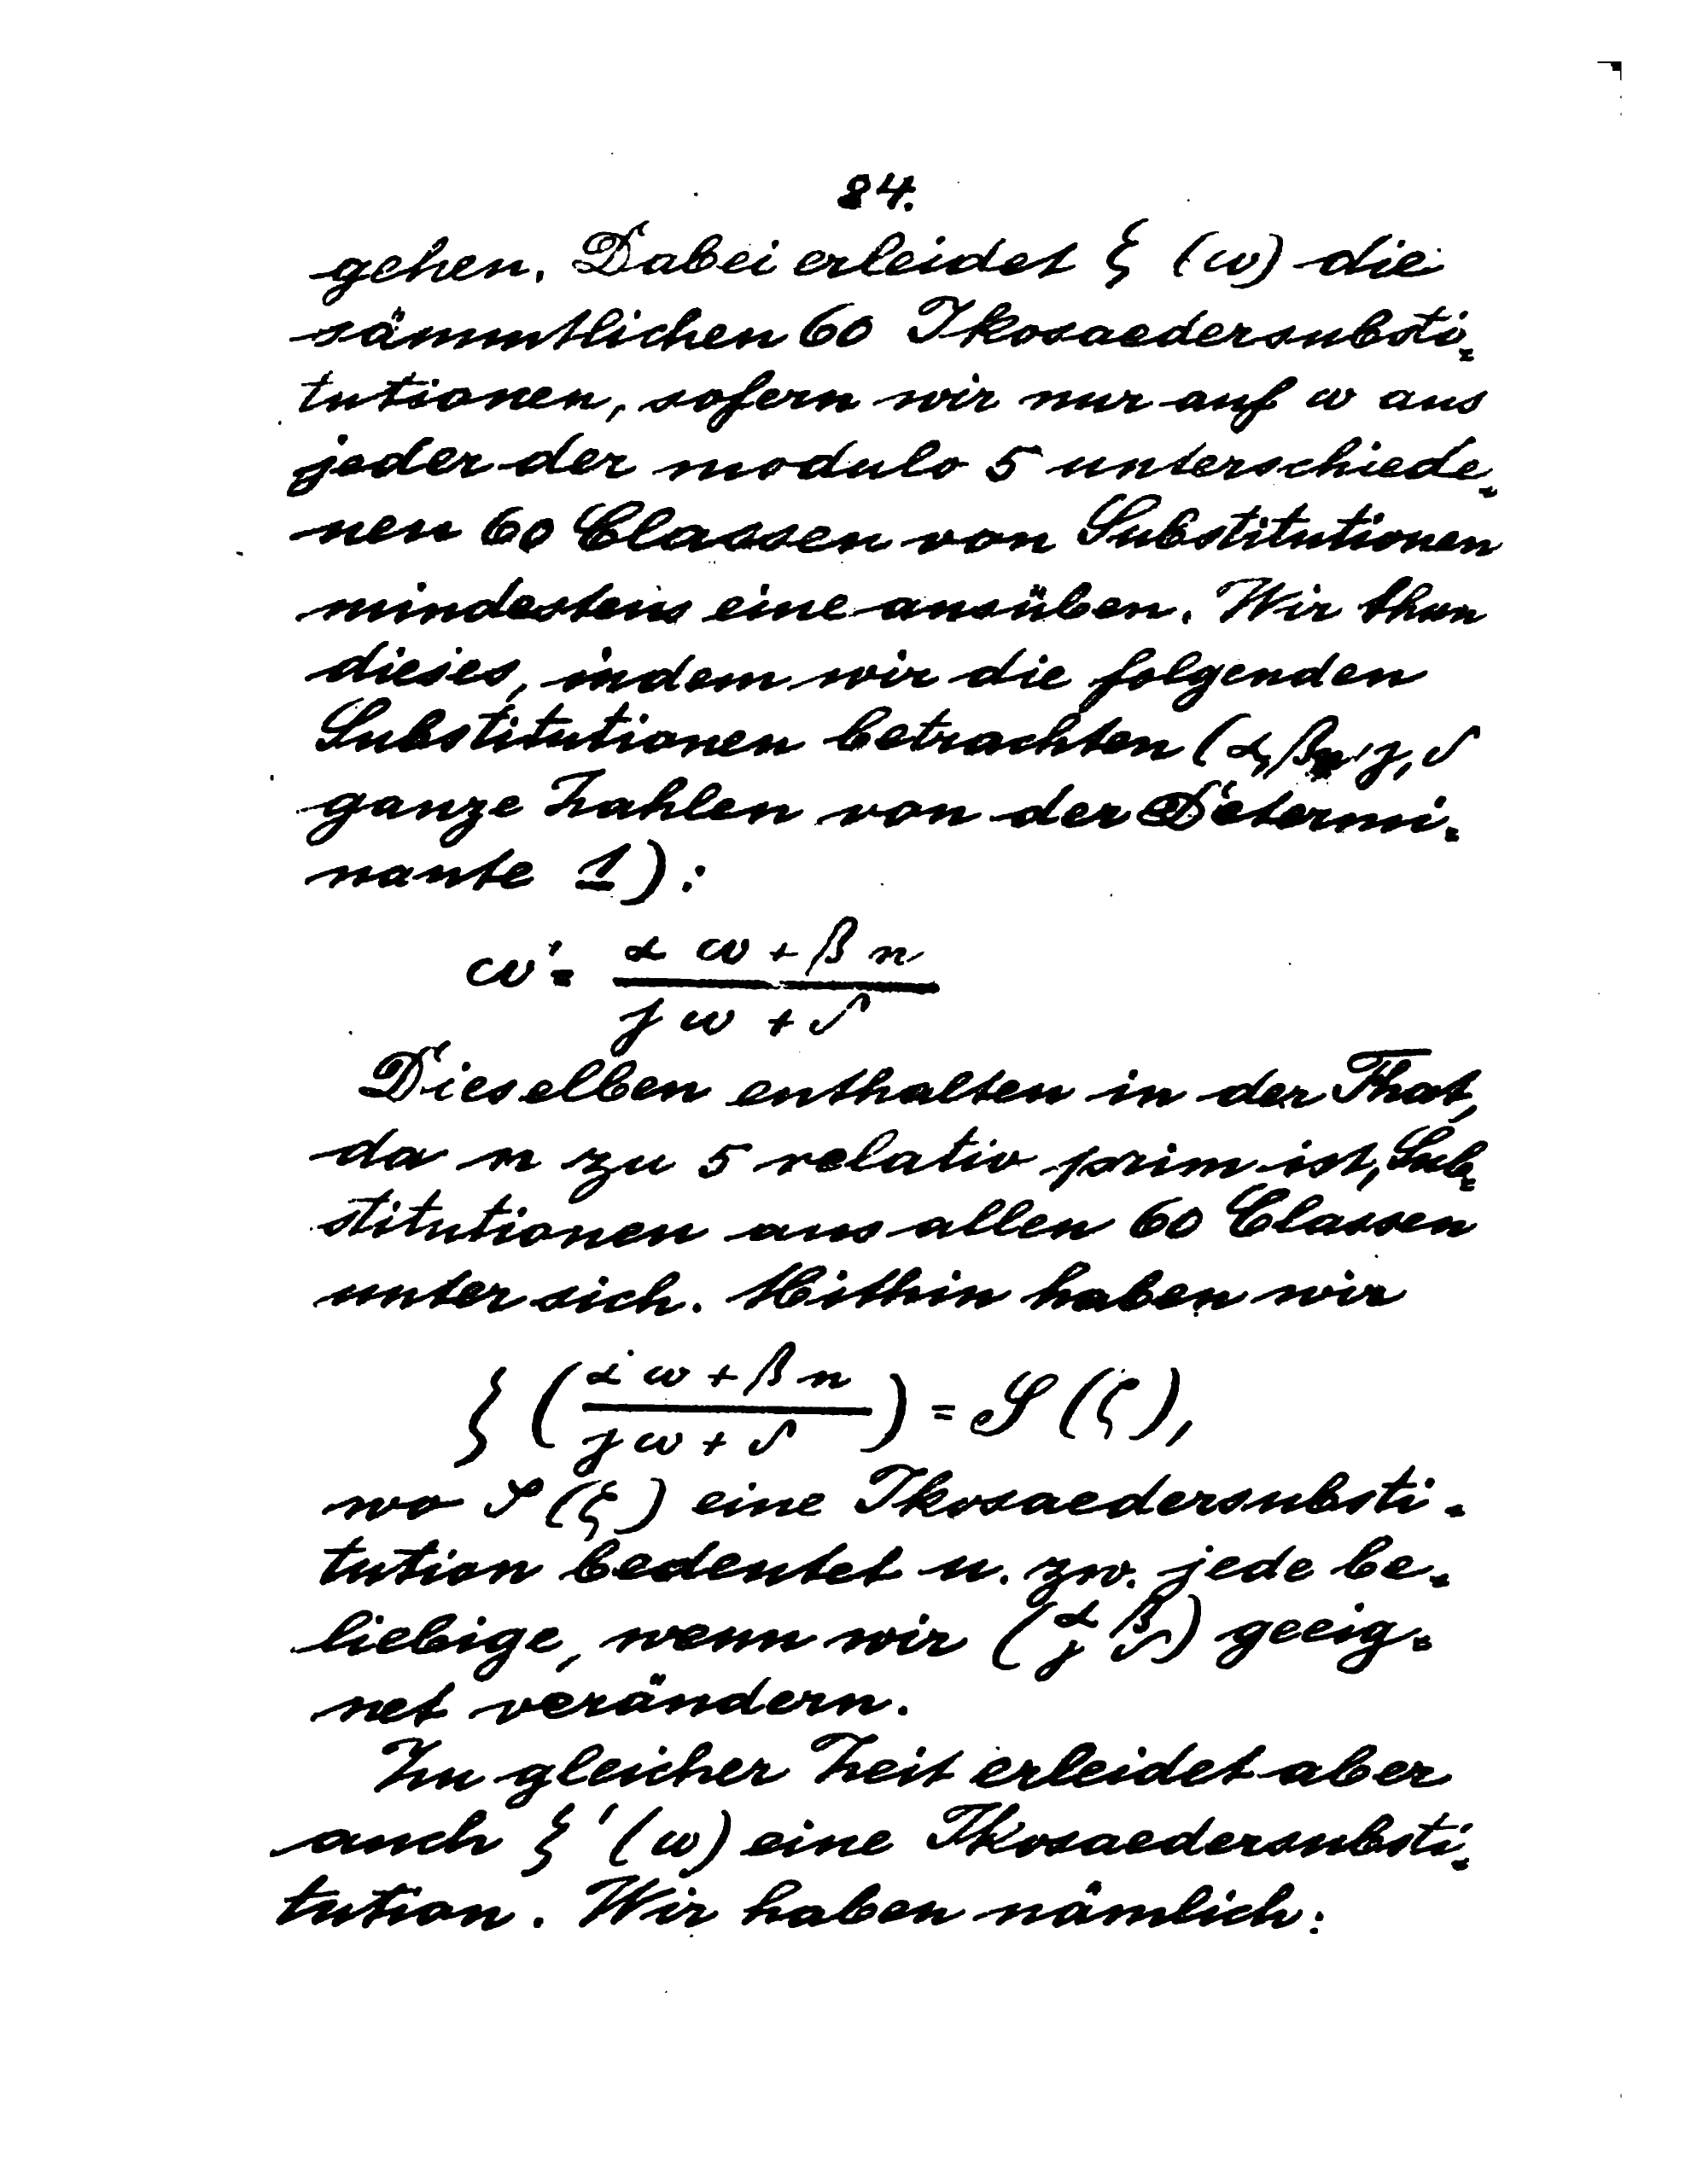 84.
gehen. Dabei erleidet ζ (ω) die
sämmtlichen 60 Ikosaedersubsti-
tutionen, sofern wir nur auf ω aus
jeder der modulo 5 unterschiede-
nen 60 Classen von Substitutionen
mindestens eine ausüben. Wir thun
dieses, indem wir die folgenden
Substitutionen betrachten (α, βn, γ, δ
ganze Zahlen von der Determi-
nante 1):
ω' = (α ω + β n) / (γ ω + δ)
Dieselben enthalten in der That,
da n zu 5 relativ prim ist, Sub-
stitutionen aus allen 60 Classen
unter sich. Mithin haben wir
ζ ((α ω + β n) / (γ ω + δ)) = S (ζ),
wo S (ζ) eine Ikosaedersubsti-
tution bedeutet u. zw. jede be-
liebige, wenn wir (α β γ δ) geeig-
net verändern.
Zu gleicher Zeit erleidet aber
auch ζ' (ω) eine Ikosaedersubsti-
tution. Wir haben nämlich: